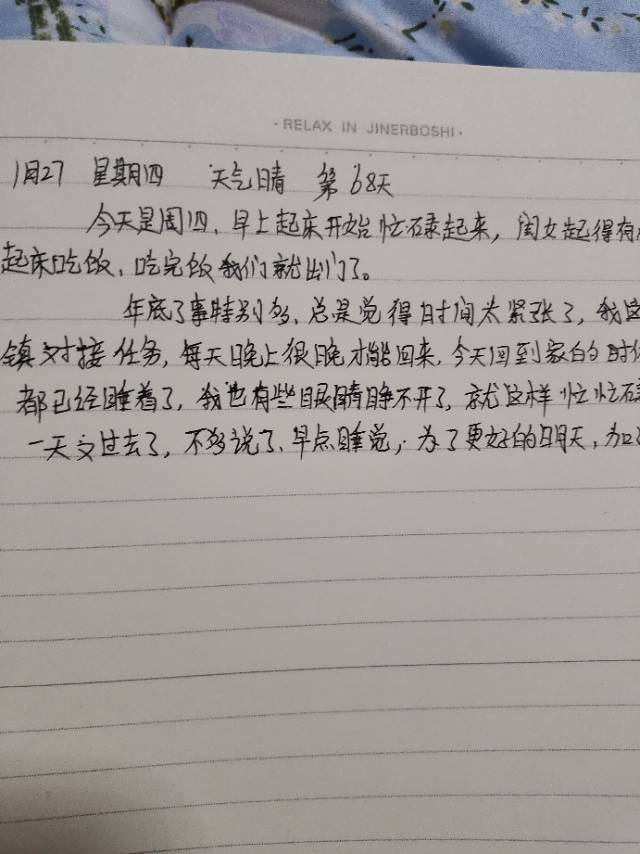 ·RELAX IN JINERBOSHI·
1月27 星期四 天气晴 第68天
今天是周四、早上起床开始忙碌起来，闺女起得有
起床吃饭、吃完饭我们就出门了。
年底了事特别多，总是觉得时间太紧张了，我这
镇对接任务，每天晚上很晚才能回来，今天回到家的时候
都已经睡着了，我也有些眼睛睁不开了，就这样忙忙碌
一天又过去了，不多说了、早点睡觉，为了更好的明天，加